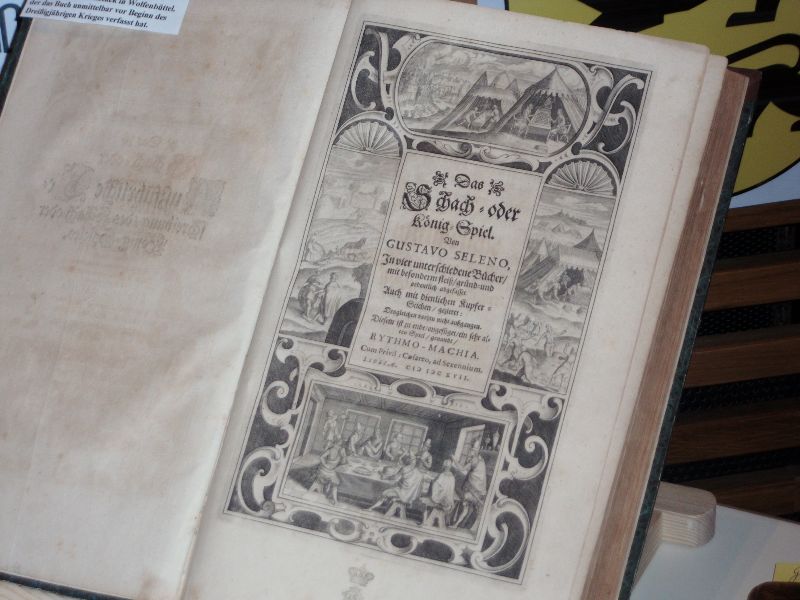 in Wolfenbüttel,
der das Buch unmittelbar vor Beginn des
Dreißigjährigen Krieges verfasst hat.
Das
Schach- oder
König-Spiel.
Von
GUSTAVO SELENO,
In vier unterschiedene Bücher/
mit besonderm fleiß/gründ-und
ordentlich abgefasset.
Auch mit dienlichen Kupfer-
Stichen/ gezieret:
Dergleichen vorhin nicht außgangen.
Diesem ist zu ende/angefüget/ein sehr al-
tes Spiel/genandt/
RYTHMO-MACHIA.
Cum Privil: Cæsareo, ad Sexennium.
LIPSIÆ. CIↃ IↃC XVII.